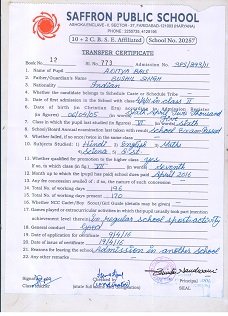 SAFFRON PUBLIC SCHOOL
ASHOKA ENCLAVE - II, SECTOR - 37, FARIDABAD - 121003 (HARYANA)
10 + 2 C. B. S. E. Affiliated (School No. 20257)
TRANSFER CERTIFICATE
Book No. 12 Sl. No. 773 Admission No.
1. Name of Pupil ADITYA
2. Father/Guardian's Name SUSHIL SINGH
3. Nationality Indian
4. Whether the candidate is Schedule Caste or Schedule Tribe
5. Date of first admission in the School with class in class II
6. Date of birth (in Christian Era) according to Admission Register
7. Class in which the pupil last studied (in figures) VI
8. School/Board Annual examination last taken with result School Exam Passed
9. Whether failed, if so once/twice in the same class
10. Subjects Studied : 1. Hindi 2. English 3. Maths
4. Science 5. S.St
11. Whether qualified for promotion to the higher class Yes
if so, which class (in fig.) VII in words seventh
12. Month up to which the (pupil) has paid school dues paid April 2016
13. Any fee concession availed of : if so, the nature of such concession
14. Total No. of working days 196
15. Total No. of working days present 170
16. Whether NCC Cadet/Boy Scout/Girl Guide (details may be given)
17. Games played or extracurricular activities in which the pupil usually took part (mention
achievement level therein) In regular school sport activity
18. General conduct Good
19. Date of application of certificate 9/4/16
20. Date of issue of certificate 19/4/16
21. Reasons for leaving the school Admission in another school
22. Any other remarks
Class teacher
Principal
SEAL